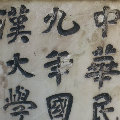 中華民
九年國
漢大學